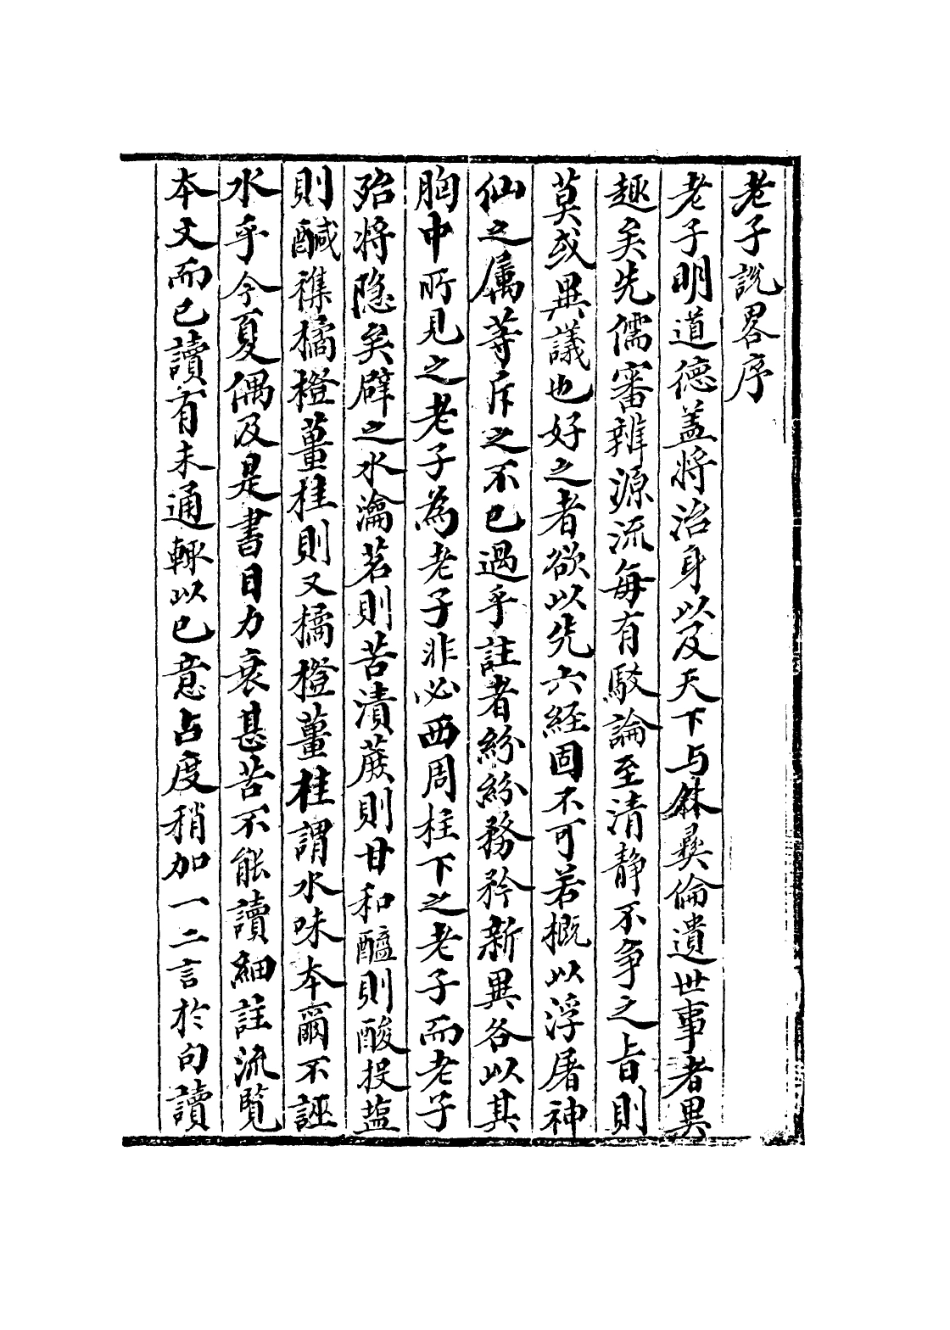 老子說畧序
老子明道德盖将治身以及天下与斁彛倫遺世事者異
趣矣先儒審辨源流每有駁論至清靜不争之㫖則
莫或異議也好之者欲以先六経固不可若概以浮屠神
仙之属等斥之不已過乎註者紛紛務矜新異各以其
胸中所見之老子為老子非必西周柱下之老子而老子
殆将隐矣辟之水瀹茗則苦漬蔗則甘和醯則酸投塩
則鹹襍橘橙薑桂則又橘橙薑桂謂水味本爾不誣
水乎今夏偶及是書目力衰甚苦不能讀細註流覧
本文而已讀有未通輒以己意占度稍加一二言於句讀